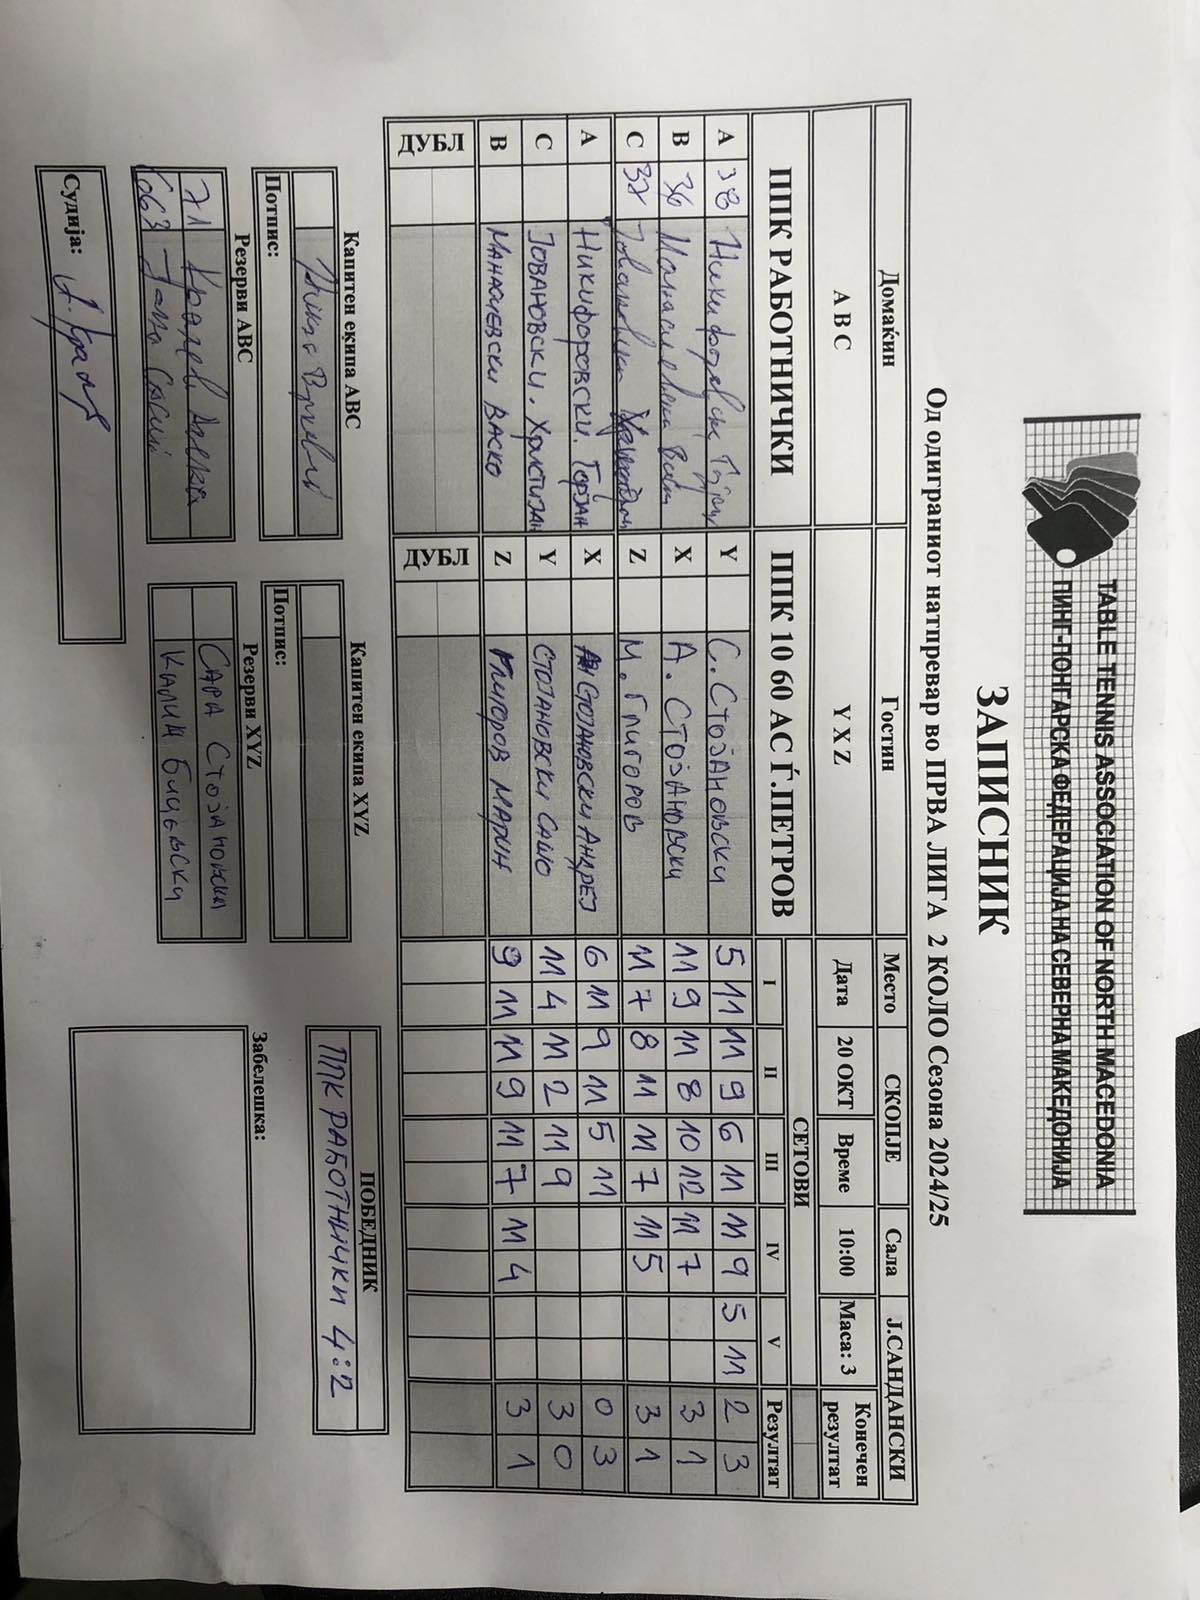 TABLE TENNIS ASSOCIATION OF NORTH MACEDONIA
ПИНГ-ПОНГАРСКА ФЕДЕРАЦИЈА НА СЕВЕРНА МАКЕДОНИЈА
ЗАПИСНИК
Од одиграниот натпревар во ПРВА ЛИГА 2 КОЛО Сезона 2024/25
Домаќин Гостин Место СКОПЈЕ Сала Ј.САНДАНСКИ
A B C Y X Z Дата 20 ОКТ Време 10:00 Маса: 3 Конечен резултат
ППК РАБОТНИЧКИ ППК 10 60 АС Ѓ.ПЕТРОВ СЕТОВИ
I II III IV V Резултат
A 38 Y С. СТОЈАНОВСКИ 5 11 11 9 6 11 11 9 5 11 2 3
B 36 X А. СТОЈАНОВСКИ 11 9 11 8 10 12 11 7 3 1
C 37 Z М. ГЛИГОРОВ 11 7 8 11 11 7 11 5 3 1
A НИКИФОРОВСКИ. ГОРЈАН X СТОЈАНОВСКИ АНДРЕЈ 6 11 9 11 5 11 0 3
C ЈОВАНОВСКИ. ХРИСТИЈАН Y СТОЈАНОВСКИ САШО 11 4 11 2 11 9 3 0
B МАНАСИЕВСКИ ВАСКО Z ГЛИГОРОВ МАРИН 9 11 11 9 11 7 11 4 3 1
ДУБЛ ДУБЛ
Капитен екипа ABC Капитен екипа XYZ ПОБЕДНИК
ППК РАБОТНИЧКИ 4:2
Потпис: Потпис:
Резерви ABC Резерви XYZ Забелешка:
71 САРА СТОЈАНОВСКИ
063 КАЛИН
Судија: